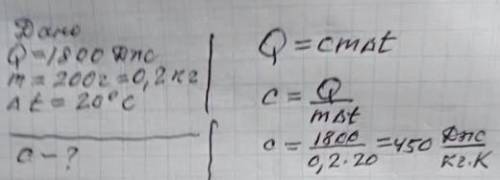 Дано
Q = 1800 Дж
m = 200г = 0,2 кг
Δt = 20°C
c - ?
Q = cmΔt
c = Q / mΔt
c = 1800 / 0,2·20 = 450 Дж / кг·К